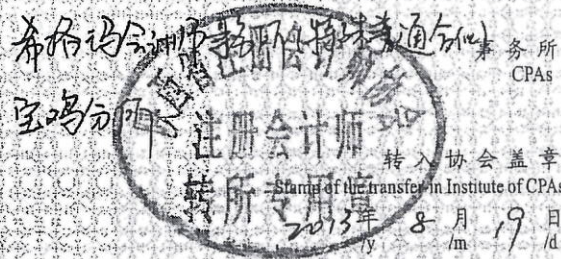 希格玛会计师事务所(特殊普通合伙) 事务所
CPAs
宝鸡分所
陕西省注册会计师协会
注册会计师
转所专用章
转入协会盖章
Stamp of the transfer-in Institute of CPAs
2013年 8月 19日
/y /m /d